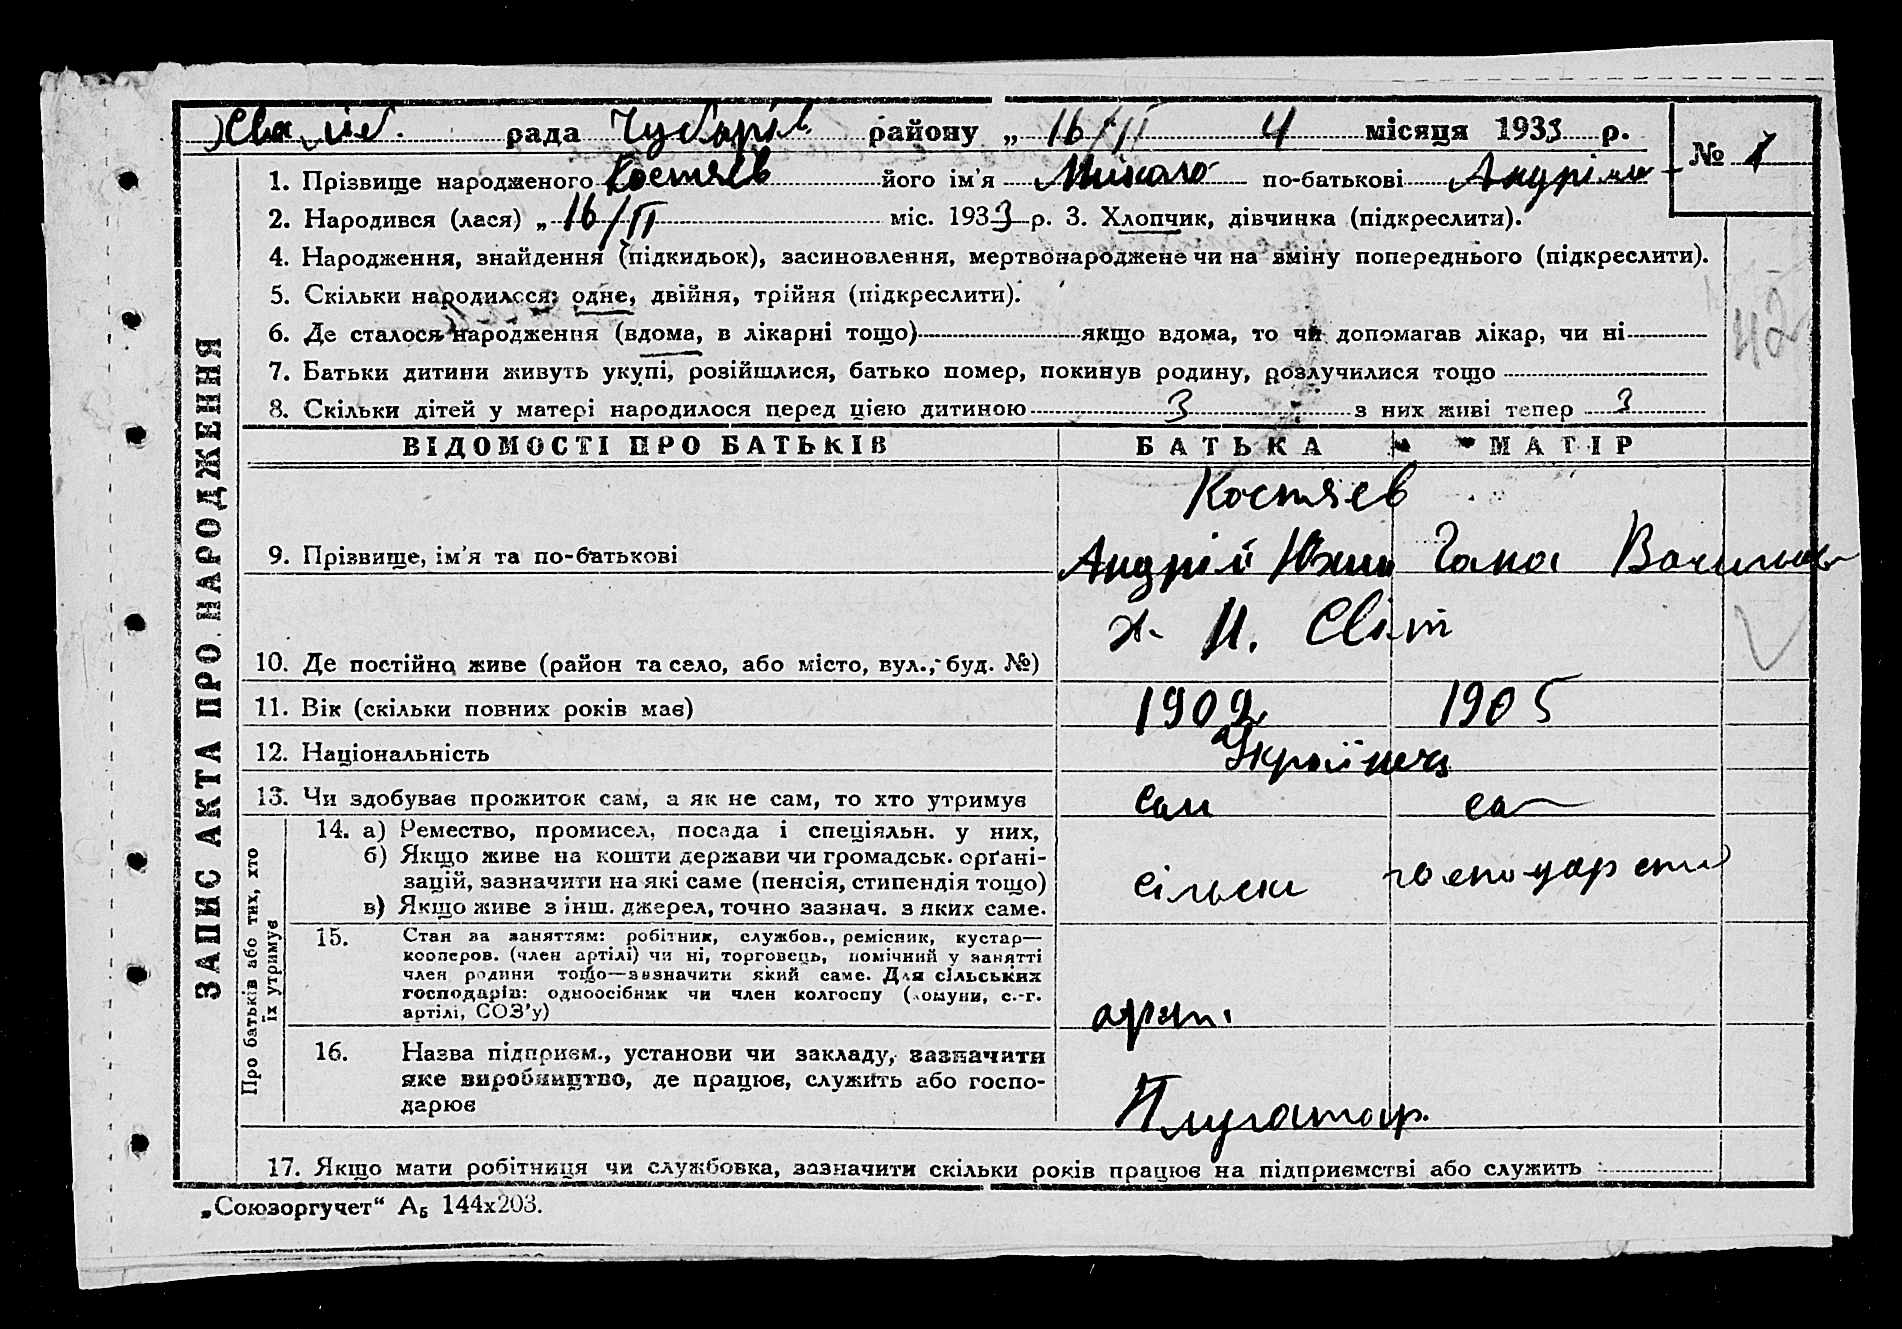 рада Чубарів району „ 16/II 4 місяця 1933 р.
№ 1
1. Прізвище народженого Костяєв його ім'я Микола по-батькові
2. Народився (лася) „ 16/II міс. 1933 р. 3. Хлопчик, дівчинка (підкреслити).
4. Народження, знайдення (підкидьок), засиновлення, мертвонароджене чи на зміну попереднього (підкреслити).
5. Скільки народилося: одне, двійня, трійня (підкреслити).
6. Де сталося народження (вдома, в лікарні тощо) якщо вдома, то чи допомагав лікар, чи ні
7. Батьки дитини живуть укупі, розійшлися, батько помер, покинув родину, розлучилися тощо
8. Скільки дітей у матері народилося перед цією дитиною 3 з них живі тепер 3
42
ЗАПИС АКТА ПРО НАРОДЖЕННЯ
ВІДОМОСТІ ПРО БАТЬКІВ БАТЬКА МАТІР
Костяєв
9. Прізвище, ім'я та по-батькові Андрій Гана
10. Де постійно живе (район та село, або місто, вул., буд. №) х. Н. Світ
11. Вік (скільки повних років має) 1902 1905
12. Національність Українець
13. Чи здобуває прожиток сам, а як не сам, то хто утримує сам са
Про батьків або тих, хто їх утримує
14. а) Ремество, промисел, посада і спеціяльн. у них,
б) Якщо живе на кошти держави чи громадськ. орґані-
зацій, зазначити на які саме (пенсія, стипендія тощо) сільськ господарство
в) Якщо живе з інш. джерел, точно зазнач. з яких саме.
15. Стан за заняттям: робітник, службов., ремісник, кустар—
кооперов. (член артілі) чи ні, торговець, помічний у занятті
член родини тощо—зазначити який саме. Для сільських
господарів: одноосібник чи член колгоспу (комуни, с.-г.
артілі, СОЗ'у) арт.
16. Назва підприєм., установи чи закладу, зазначити
яке виробництво, де працює, служить або госпо-
дарює Плугатар.
17. Якщо мати робітниця чи службовка, зазначити скільки років працює на підприємстві або служить
„Союзоргучет“ А₅ 144x203.